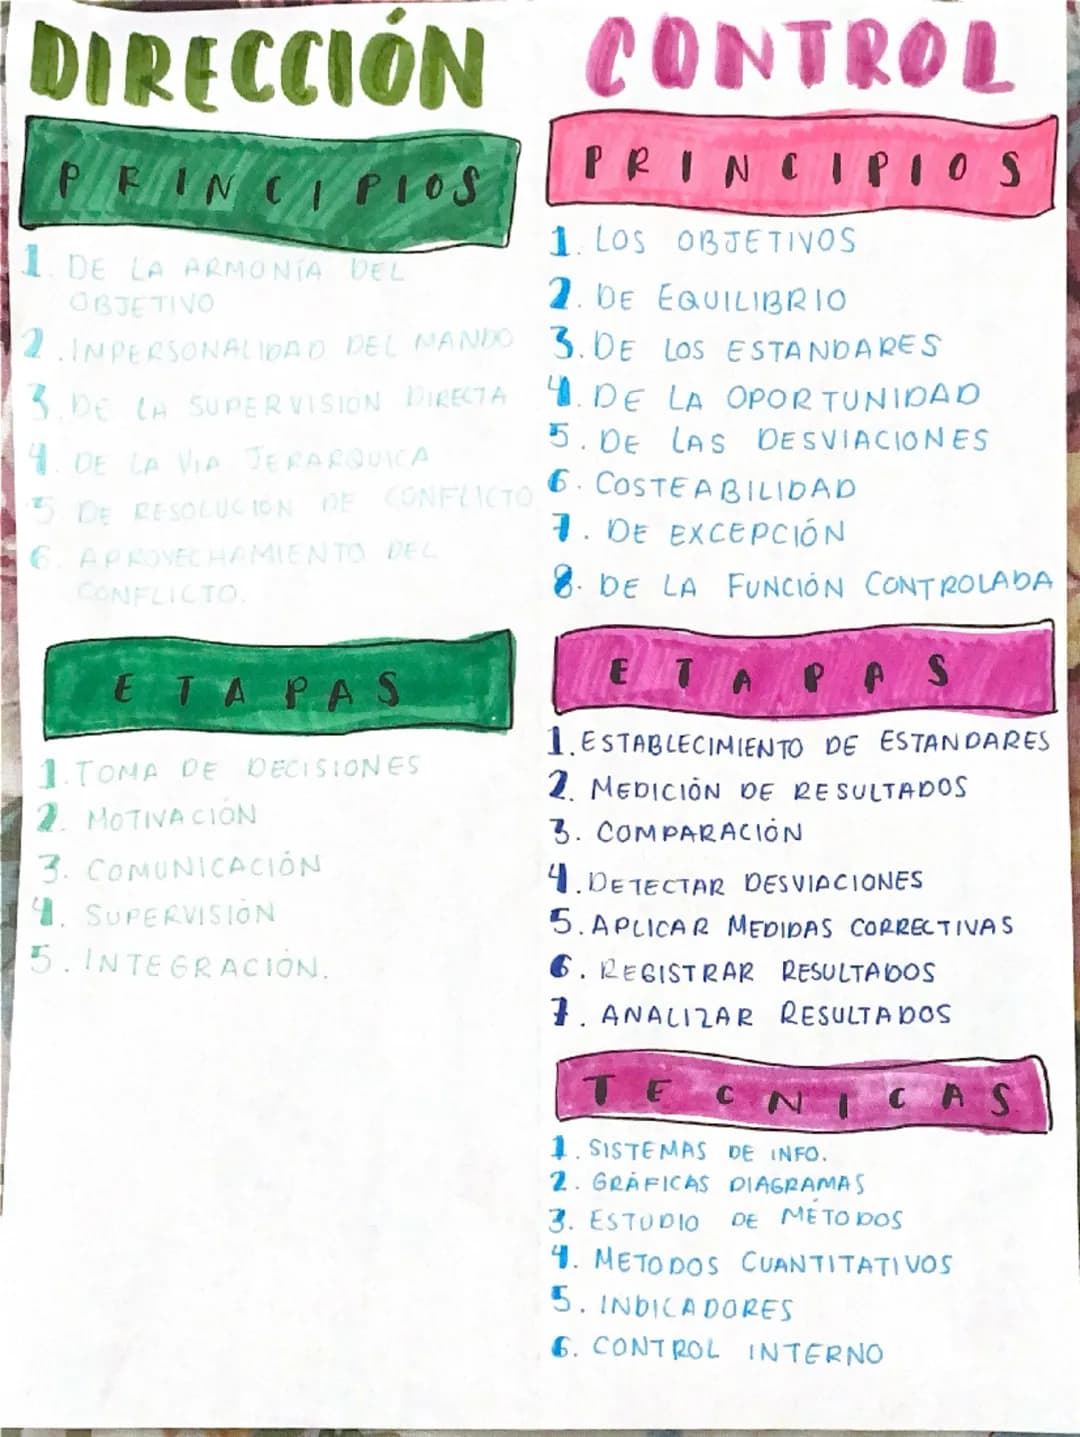 DIRECCIÓN
PRINCIPIOS
1. DE LA ARMONÍA DEL
OBJETIVO
2. IMPERSONALIDAD DEL MANDO
3. DE LA SUPERVISIÓN DIRECTA
4. DE LA VIA JERARQUICA
5 DE RESOLUCIÓN DE CONFLICTO
6. APROVECHAMIENTO DEL
CONFLICTO.
ETAPAS
1. TOMA DE DECISIONES
2. MOTIVACIÓN
3. COMUNICACIÓN
4. SUPERVISIÓN
5. INTEGRACIÓN.
CONTROL
PRINCIPIOS
1. LOS OBJETIVOS
2. DE EQUILIBRIO
3. DE LOS ESTANDARES
4. DE LA OPORTUNIDAD
5. DE LAS DESVIACIONES
6. COSTEABILIDAD
7. DE EXCEPCIÓN
8. DE LA FUNCIÓN CONTROLADA
ETAPAS
1. ESTABLECIMIENTO DE ESTANDARES
2. MEDICIÓN DE RESULTADOS
3. COMPARACIÓN
4. DETECTAR DESVIACIONES
5. APLICAR MEDIDAS CORRECTIVAS
6. REGISTRAR RESULTADOS
7. ANALIZAR RESULTADOS
TECNICAS
1. SISTEMAS DE INFO.
2. GRÁFICAS DIAGRAMAS
3. ESTUDIO DE MÉTODOS
4. METODOS CUANTITATIVOS
5. INDICADORES
6. CONTROL INTERNO